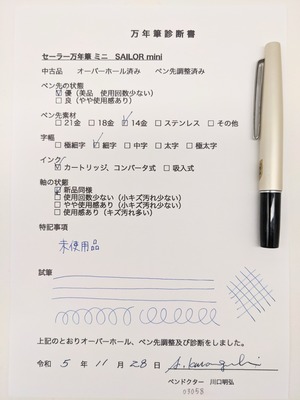 万年筆診断書
セーラー万年筆 ミニ　SAILOR mini
中古品　オーバーホール済み　ペン先調整済み
ペン先の状態
☑優（美品　使用回数少ない）
□良（やや使用感あり）
ペン先素材
□21金　□18金　☑14金　□ステンレス　□その他
字幅
□極細字　☑細字　□中字　□太字　□極太字
インク
☑カートリッジ、コンバータ式　□吸入式
軸の状態
☑新品同様
□使用回数少ない（小キズ汚れ少ない）
□やや使用感あり（小キズ汚れ少ない）
□使用感あり（キズ汚れ多い）
特記事項
未使用品
試筆
上記のとおりオーバーホール、ペン先調整及び診断をしました。
令和　5　年　11　月　28　日
ペンドクター　川口明弘
03058